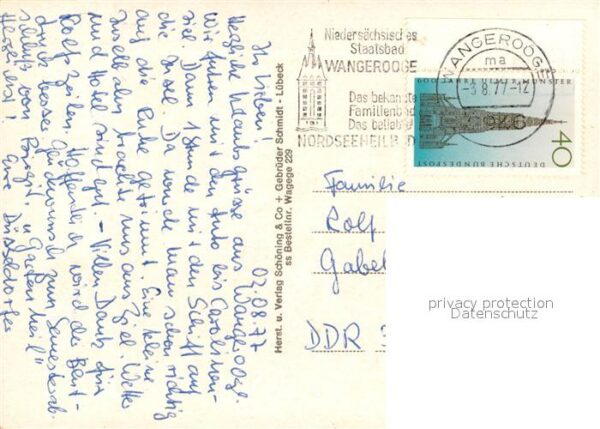 02.08.77
Ihr Lieben!
Herzliche Urlaubsgrüsse aus Wangerooge.
Wir fuhren mit dem Auto bis Carolinen-
siel. Dann 1 Stunde mit dem Schiff auf
die Insel. Da wurde man schon richtig
auf die Ruhe getrimmt. Eine kleine
Inselbahn brachte uns ans Ziel. Wetter
und Hotel sind gut. - Vielen Dank für
Rolfs Zeilen. Hoffentlich wird der Blut-
druck besser. Glückwunsch zum Semesterab-
schluß von u.
Herzlichst! Eure Düsseldorfer
Herst. u. Verlag Schöning & Co + Gebrüder Schmidt - Lübeck
ss Bestellnr. Wagege 229
Niedersächsisches
Staatsbad
WANGEROOGE
Das bekannte
Familienbad
Das beliebte
NORDSEEHEILBAD
WANGEROOGE
ma
-3.8.77-12
600 JAHRE ULMER MÜNSTER
DEUTSCHE BUNDESPOST
40
Familie
Rolf
Gabel
DDR
privacy protection
Datenschutz